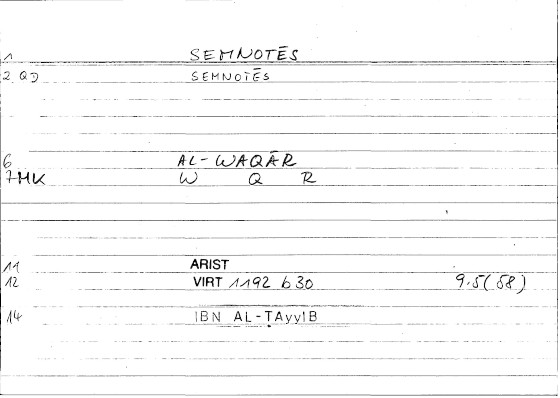 1 SEMNOTĒS
2 QD SEMNOTĒS
6 AL-WAQĀR
7 MK W Q R
11 ARIST
12 VIRT 1192 b 30 9.5(58)
14 IBN AL-TAyyIB